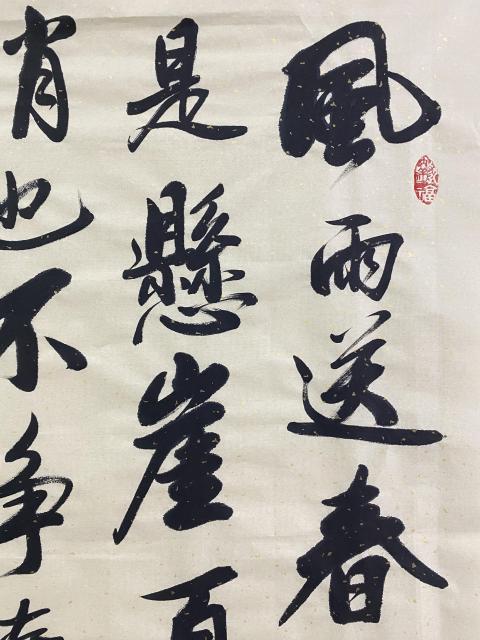 風雨送春
是懸崖百
肖也不争春